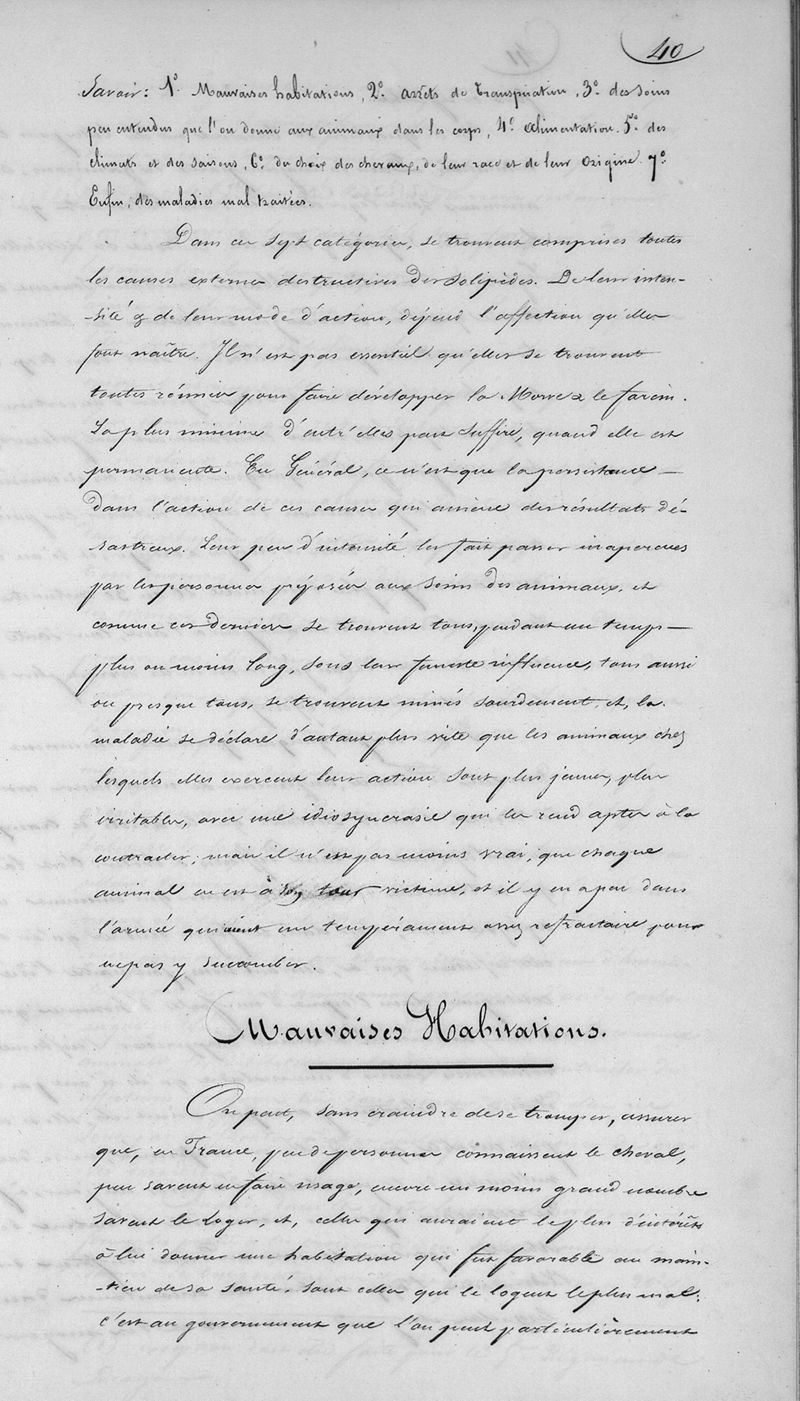 40
Savoir : 1° Mauvaises habitations, 2° arrêts de transpiration, 3° des soins
peu entendus que l'on donne aux animaux dans les corps, 4° alimentation. 5° des
climats et des saisons, 6° du choix des chevaux, de leur race et de leur origine 7°
Enfin, des maladies mal traitées.
Dans ces sept catégories, se trouvent comprises toutes
les causes externes destructives des solipèdes. De leur inten-
-sité & de leur mode d'action, dépend l'affection qu'elles
font naître. Il n'est pas essentiel qu'elles se trouvent
toutes réunies pour faire développer la Morve & le farcin.
La plus minime d'entr'elles peut suffire, quand elle est
permanente. En Général, ce n'est que la persistance —
dans l'action de ces causes qui amène des résultats dé-
sastreux. Leur peu d'intensité les fait passer inaperçues
par les personnes préposées aux soins des animaux, et
comme ces derniers se trouvent tous, pendant un temps —
plus ou moins long, sous leur funeste influence, tous aussi
ou presque tous, se trouvent minés sourdement, et, la
maladie se déclare d'autant plus vite que les animaux chez
lesquels elles exercent leur action sont plus jeunes, plus
irritables, avec une idiosyncrasie qui les rend aptes à la
contracter; mais il n'est pas moins vrai, que chaque
animal en est à son tour victime, et il y en a peu dans
l'armée qui aient un tempérament assez refractaire pour
ne pas y succomber.
Mauvaises Habitations.
On peut, sans craindre de se tromper, assurer
que, en France, peu de personnes connaissent le cheval,
peu savent en faire usage, encore un moins grand nombre
savent le loger, et, celles qui auraient le plus d'intérêts
à lui donner une habitation qui fut favorable au main-
-tien de sa santé, sont celles qui le logent le plus mal:
c'est au gouvernement que l'on peut particulièrement